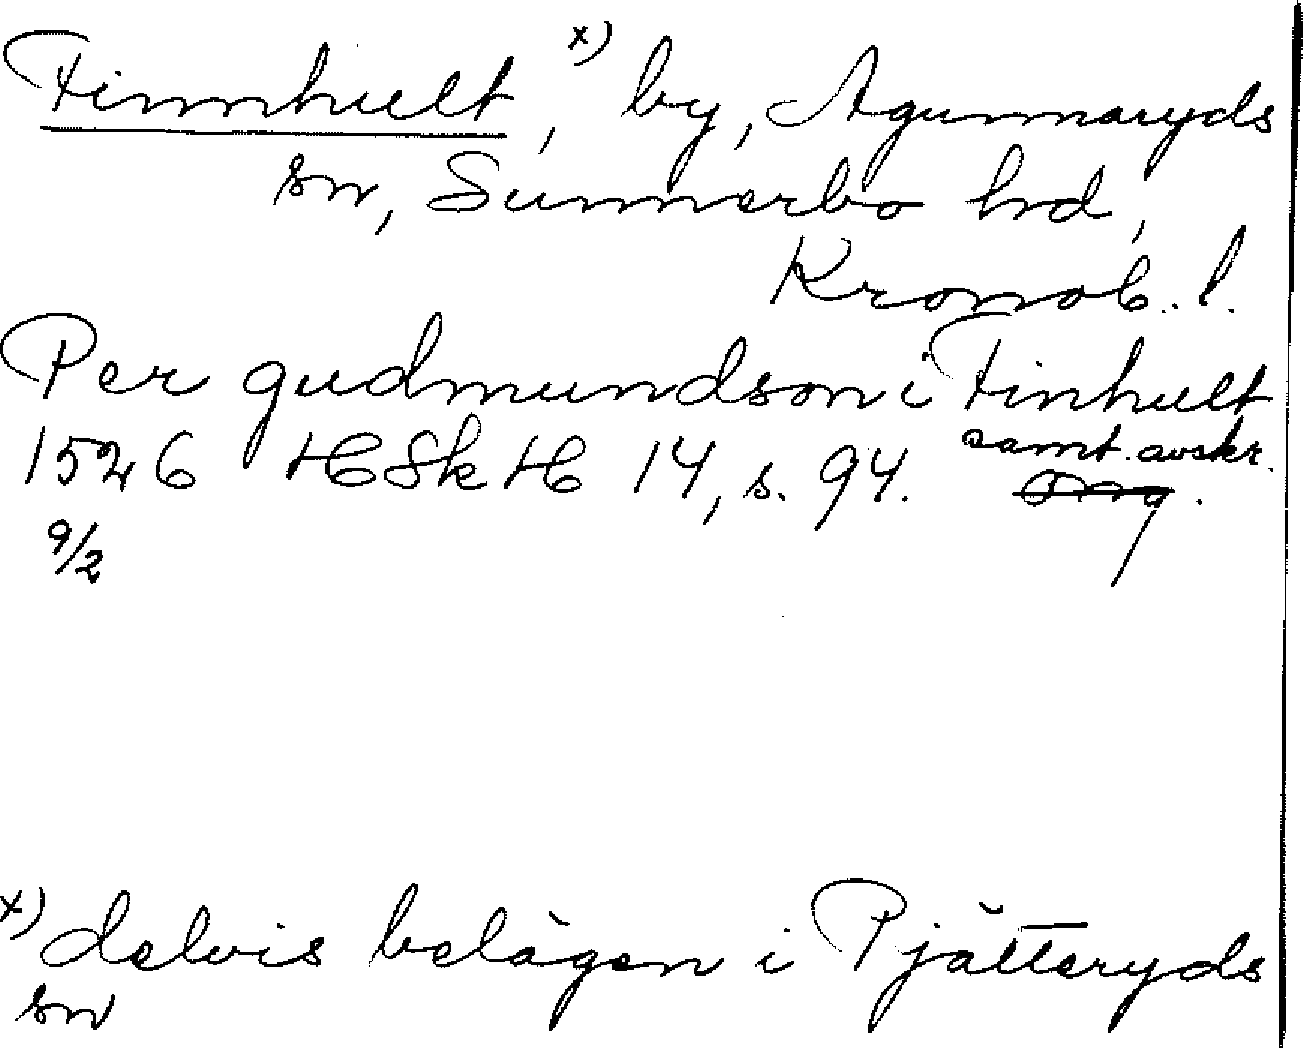 Finnhult, x) by, Agunnaryds
sn, Sunnerbo hd,
Kronob. l.
Per gudmundson i Finhult
1526 HSkH 14, s. 94. samt. avskr.
9/2
x) delvis belägen i Pjätteryds
sn